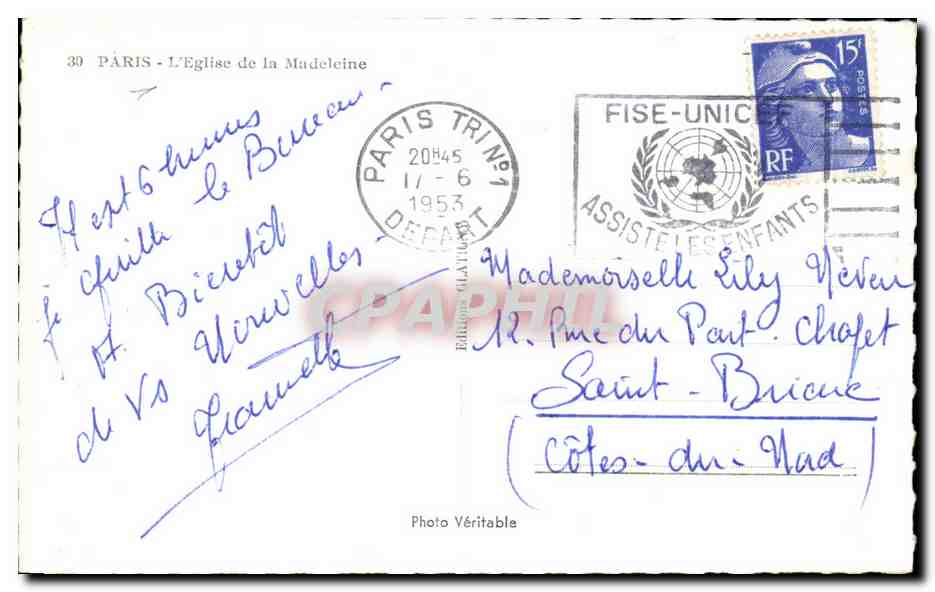 30 PARIS - L'Eglise de la Madeleine
Il est 6 heures
je quitte le Bureau -
A Bientôt
de Vs Nouvelles -
PARIS TRI Nº1
20H45
17 - 6
1953
DEPART
FISE-UNICEF
ASSISTE LES ENFANTS
15F
POSTES
RF
CPAPHIL
Editions GLATIGNY
Mademoiselle Lily Neveu
12, Rue du Parc. Chafet
Saint-Brieuc
(Côtes-du-Nord)
Photo Véritable